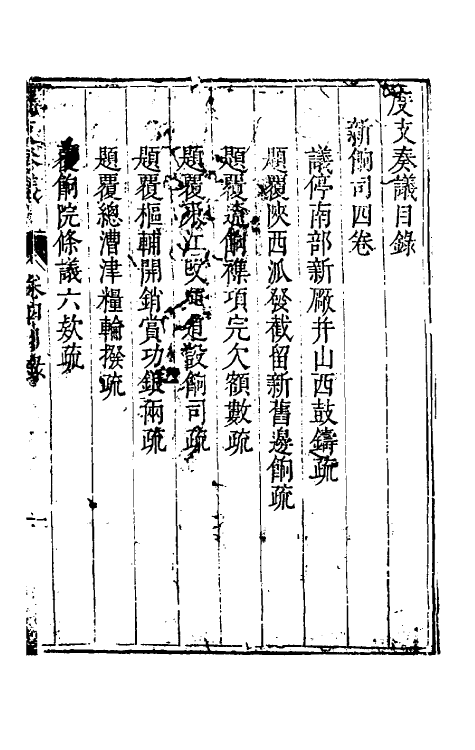 度支奏議目錄
新餉司四卷
議停南部新厰并山西鼓鑄疏
題覆陝西派發截留新舊邊餉疏
題覆遼餉襍項完欠額數疏
題覆東江改道設餉司疏
題覆樞輔開銷賞功銀兩疏
題覆總漕津糧輪撥疏
覆餉院條議六欵疏